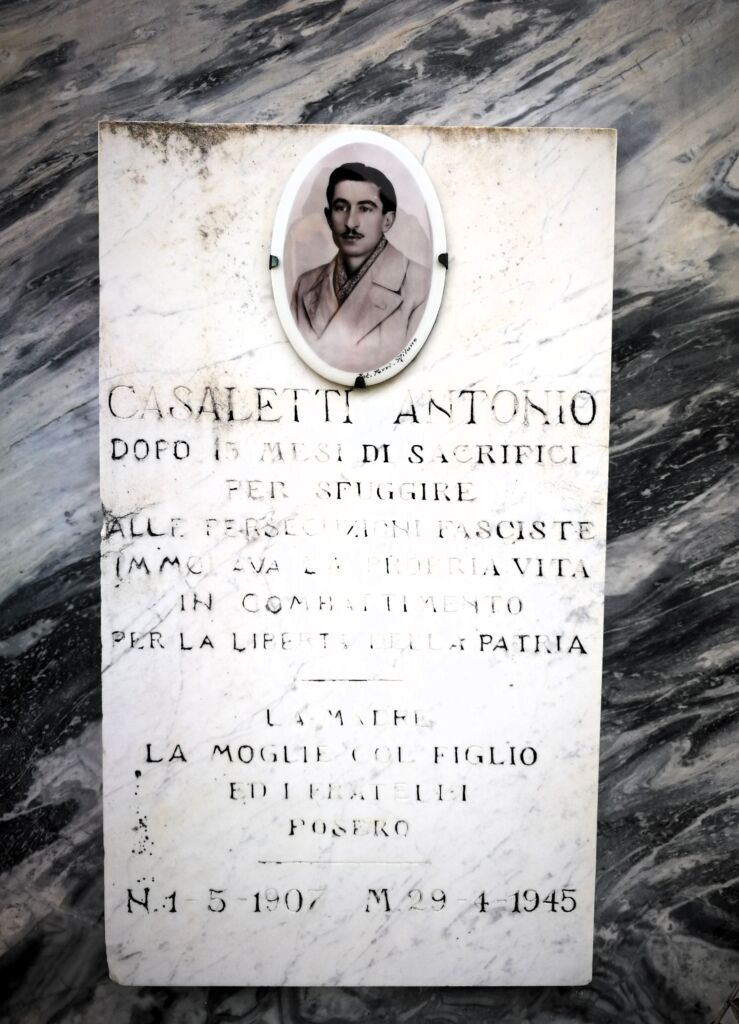 Fot. Terri-Milano
CASALETTI ANTONIO
DOPO 15 MESI DI SACRIFICI
PER SFUGGIRE
ALLE PERSECUZIONI FASCISTE
IMMOLAVA LA PROPRIA VITA
IN COMBATTIMENTO
PER LA LIBERTÀ DELLA PATRIA
LA MADRE
LA MOGLIE COL FIGLIO
ED I FRATELLI
POSERO
N. 1-5-1907 M. 29-4-1945